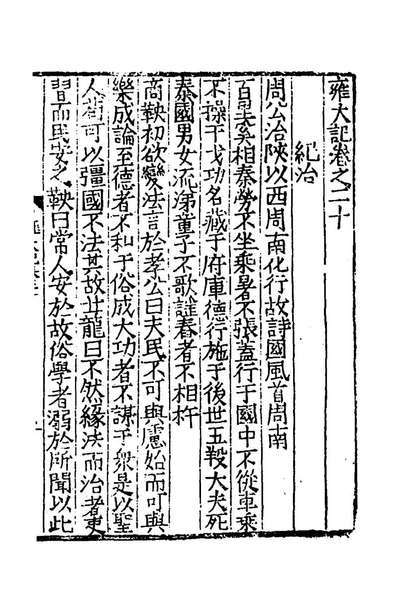 雍大記卷之二十
紀治
周公治陜以西周南化行故詩國風首周南
百里奚相秦勞不坐乘暑不張蓋行于國中不從車乘
不操干戈功名藏于府庫德行施于後世五羖大夫死
秦國男女流涕童子不歌謡舂者不相杵
商鞅初欲變法言於孝公曰夫民不可與慮始而可與
樂成論至德者不和于俗成大功者不謀于衆是以聖
人苟可以彊國不法其故甘龍曰不然緣法而治者吏
習而民安之鞅曰常人安於故俗學者溺於所聞以此